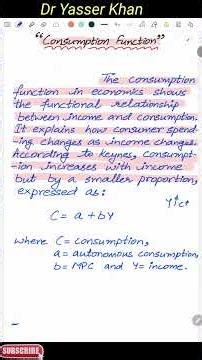 Dr Yasser Khan
"Consumption Function"
The consumption
function in economics shows
the functional relationship
between income and consumption.
It explains how consumer spend-
ing changes as income changes.
According to keynes, consumpt-
ion increases with income
but by a smaller proportion,
expressed as: Y↑C↑
C = a + bY
where C = consumption,
a = autonomous consumption,
b = MPC and Y = income.
SUBSCRIBE